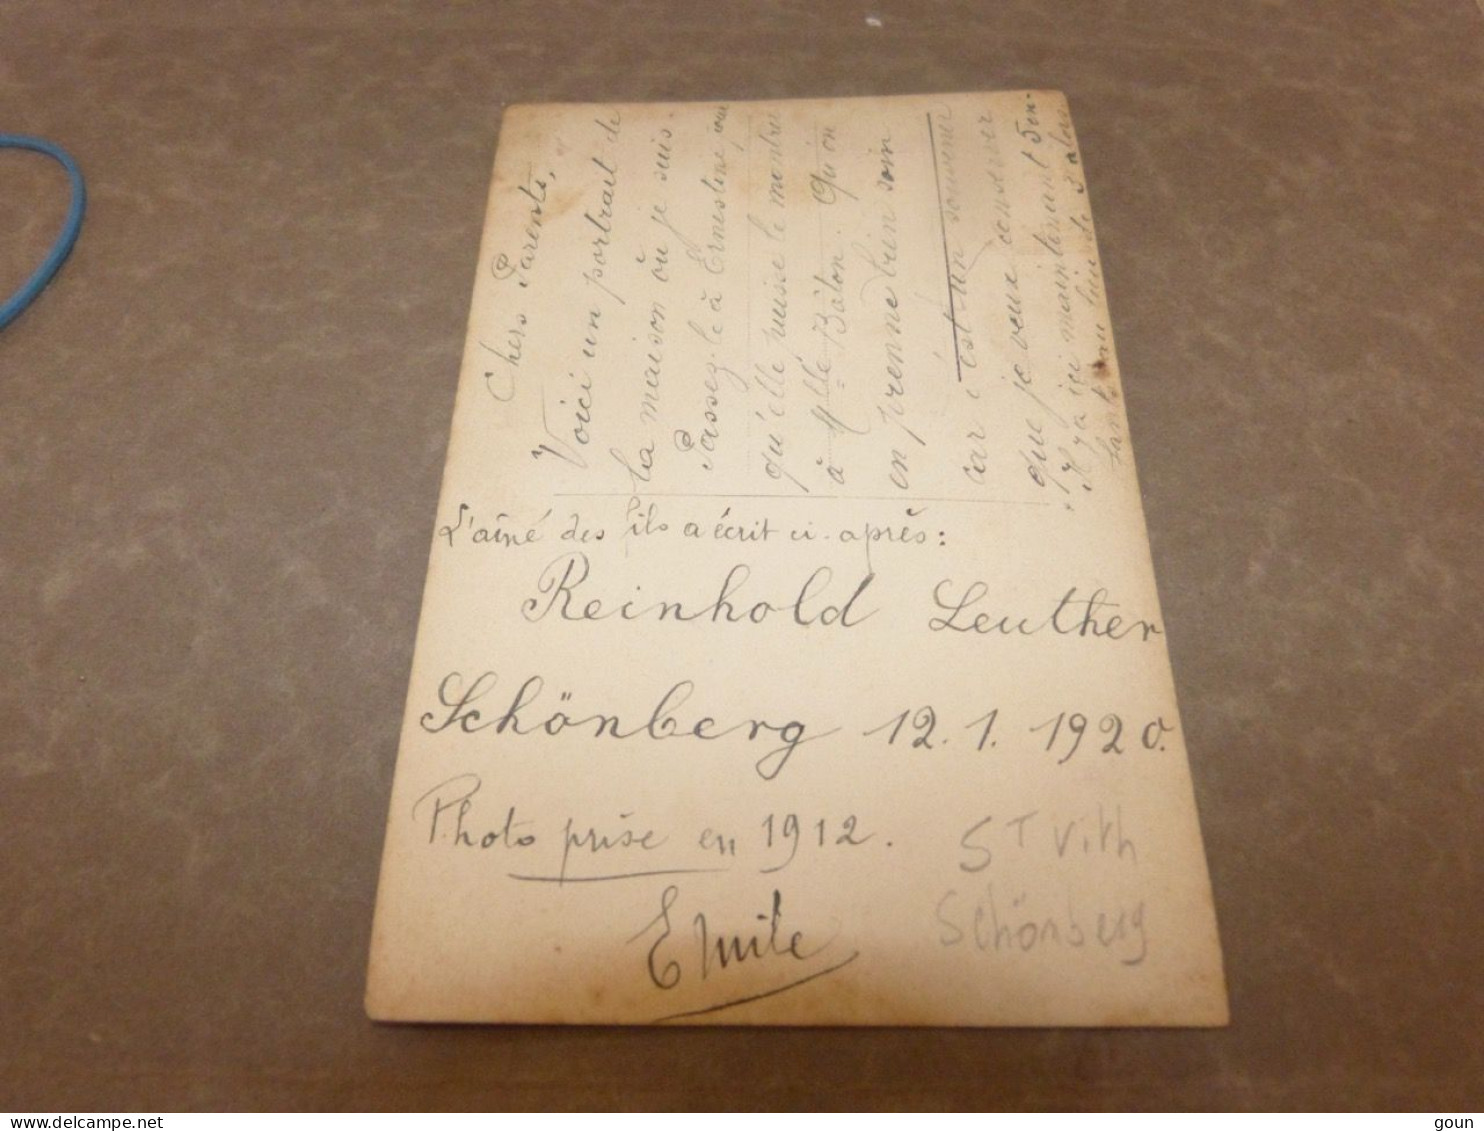 Chers Parents,
Voici un portrait de
la maison où je suis.
Passez-le à Ernestine pour
qu'elle puisse le montrer
à Mlle Bâlon. Qu'on
en prenne bien soin
car c'est un souvenir
que je veux conserver
Il y a ici maintenant 5 en-
fants au lieu de 3 alors.
L'aîné des fils a écrit ci-après:
Reinhold Leuther
Schönberg 12.1.1920.
Photo prise en 1912.
Emile
ST Vith
Schönberg
delcampe.net
goun